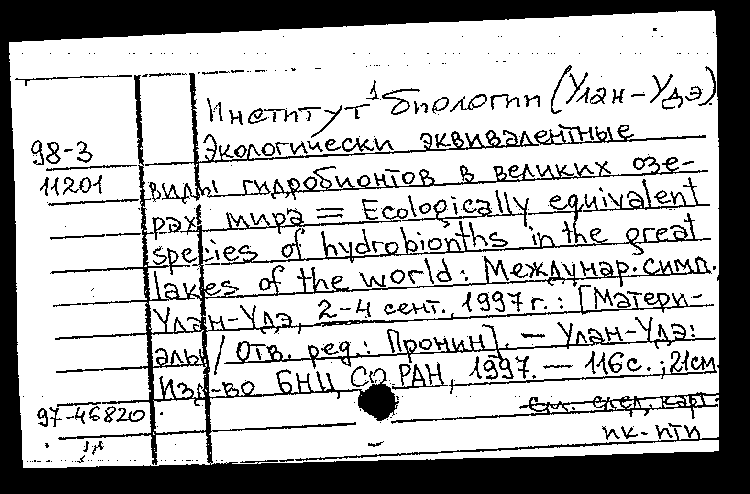 Институт¹ биологии (Улан-Удэ)
98-3 Экологически эквивалентные
11201 виды гидробионтов в великих озе-
рах мира = Ecologically equivalent
species of hydrobionths in the great
lakes of the world: Междунар. симп.
Улан-Удэ, 2-4 сент., 1997 г. : [Матери-
алы / Отв. ред.: Пронин]. — Улан-Удэ:
Изд-во БНЦ СО РАН, 1997. — 116с. ; 21см
97-46820 см. след. карт.
пк-пти